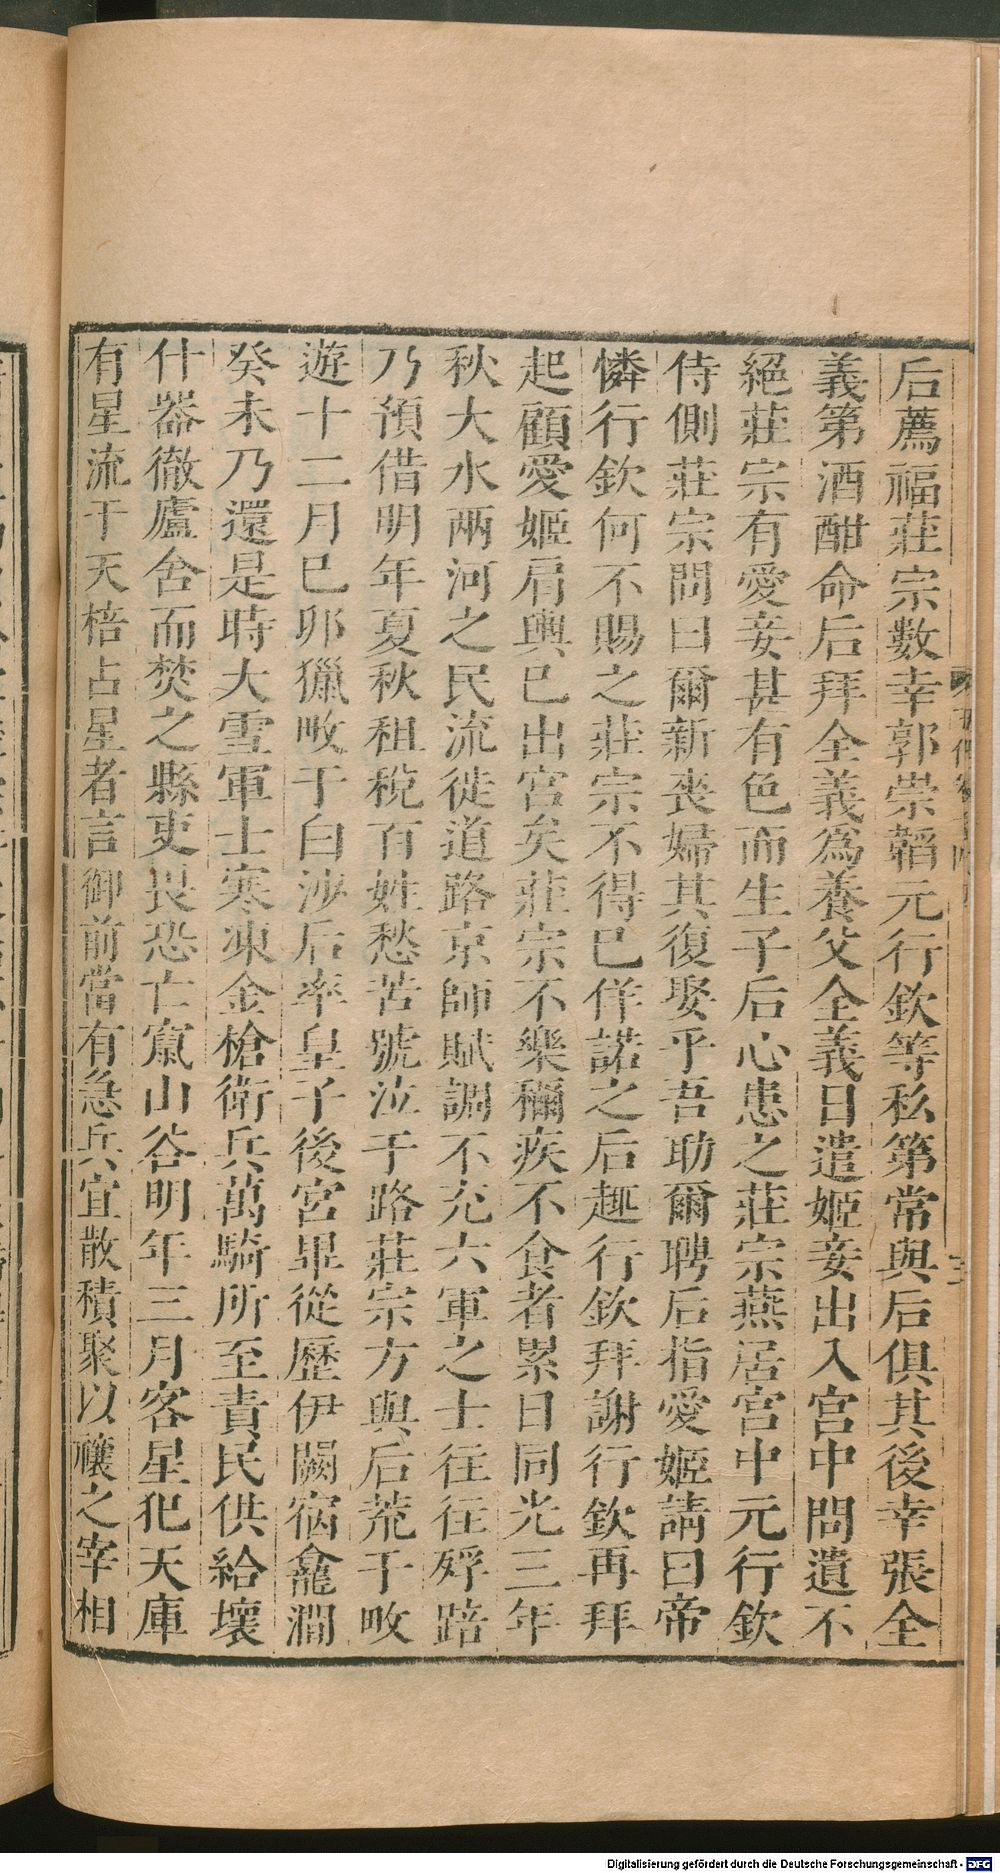 后薦福莊宗數幸郭崇韜元行欽等私第常與后俱其後幸張全
義第酒酣命后拜全義為養父全義日遣姬妾出入宮中問遺不
絕莊宗有愛妾甚有色而生子后心患之莊宗燕居宮中元行欽
侍側莊宗問曰爾新喪婦其復娶乎吾助爾聘后指愛姬請曰帝
憐行欽何不賜之莊宗不得已佯諾之后趣行欽拜謝行欽再拜
起顧愛姬肩輿已出宮矣莊宗不樂稱疾不食者累日同光三年
秋大水兩河之民流徙道路京師賦調不充六軍之士往往殍踣
乃預借明年夏秋租稅百姓愁苦號泣于路莊宗方與后荒于畋
遊十二月己卯獵畋于白沙后率皇子後宮畢從歷伊闕宿龕澗
癸未乃還是時大雪軍士寒凍金槍衛兵萬騎所至責民供給壞
什器徹廬舍而焚之縣吏畏恐亡竄山谷明年三月客星犯天庫
有星流于天棓占星者言御前當有急兵宜散積聚以禳之宰相
Digitalisierung gefördert durch die Deutsche Forschungsgemeinschaft - DFG